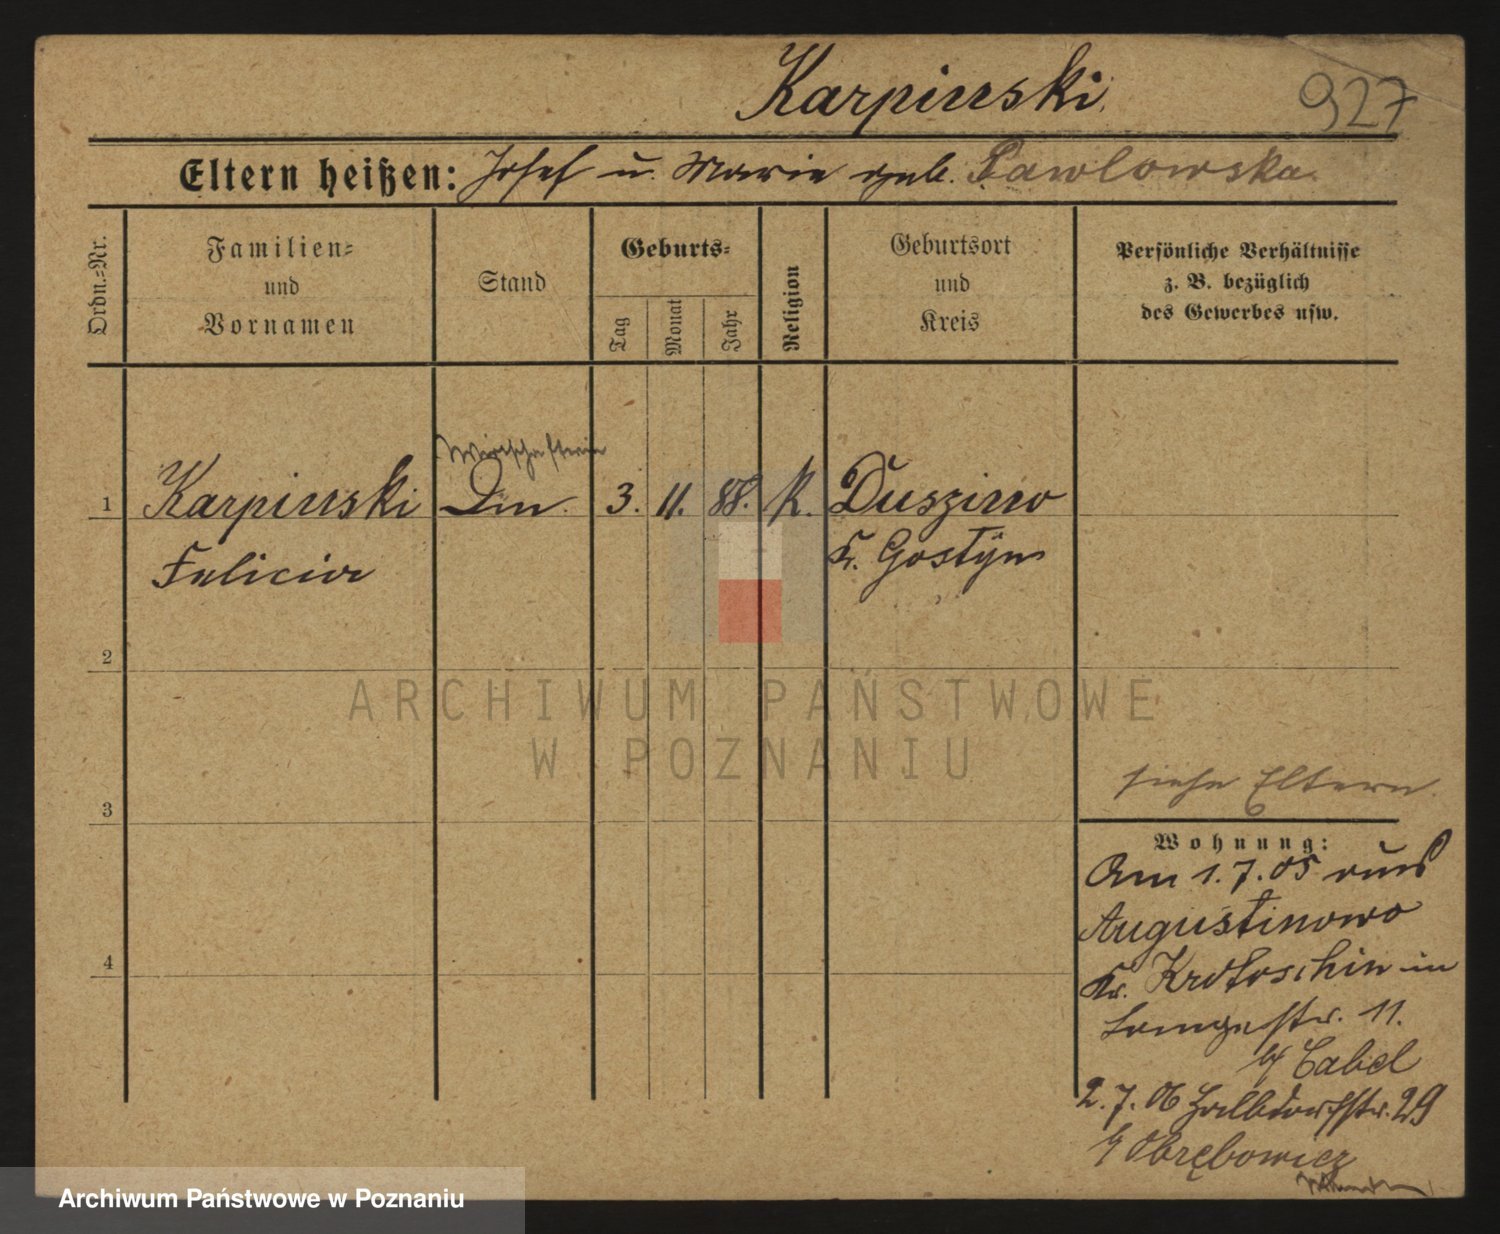 Karpinski
927
Eltern heißen: Josef u. Marie geb. Pawlowska
Ordn.-Nr.
Familien-
und
Vornamen
Stand
Geburts-
Tag
Monat
Jahr
Religion
Geburtsort
und
Kreis
Persönliche Verhältnisse
z. B. bezüglich
des Gewerbes usw.
Wirtschafterin
1 Karpinski 3. 11. 88. K. Duszino
Felicia Kr. Gostyn
2
ARCHIWUM PAŃSTWOWE
W POZNANIU
siehe Eltern.
3
Wohnung:
Am 1.7.05 aus
Augustinowo
Kr. Krotoschin in
Langestr. 11.
b/ Cabel
4
2.7.06 Halbdorfstr. 29
b/ Obrębowicz
Archiwum Państwowe w Poznaniu